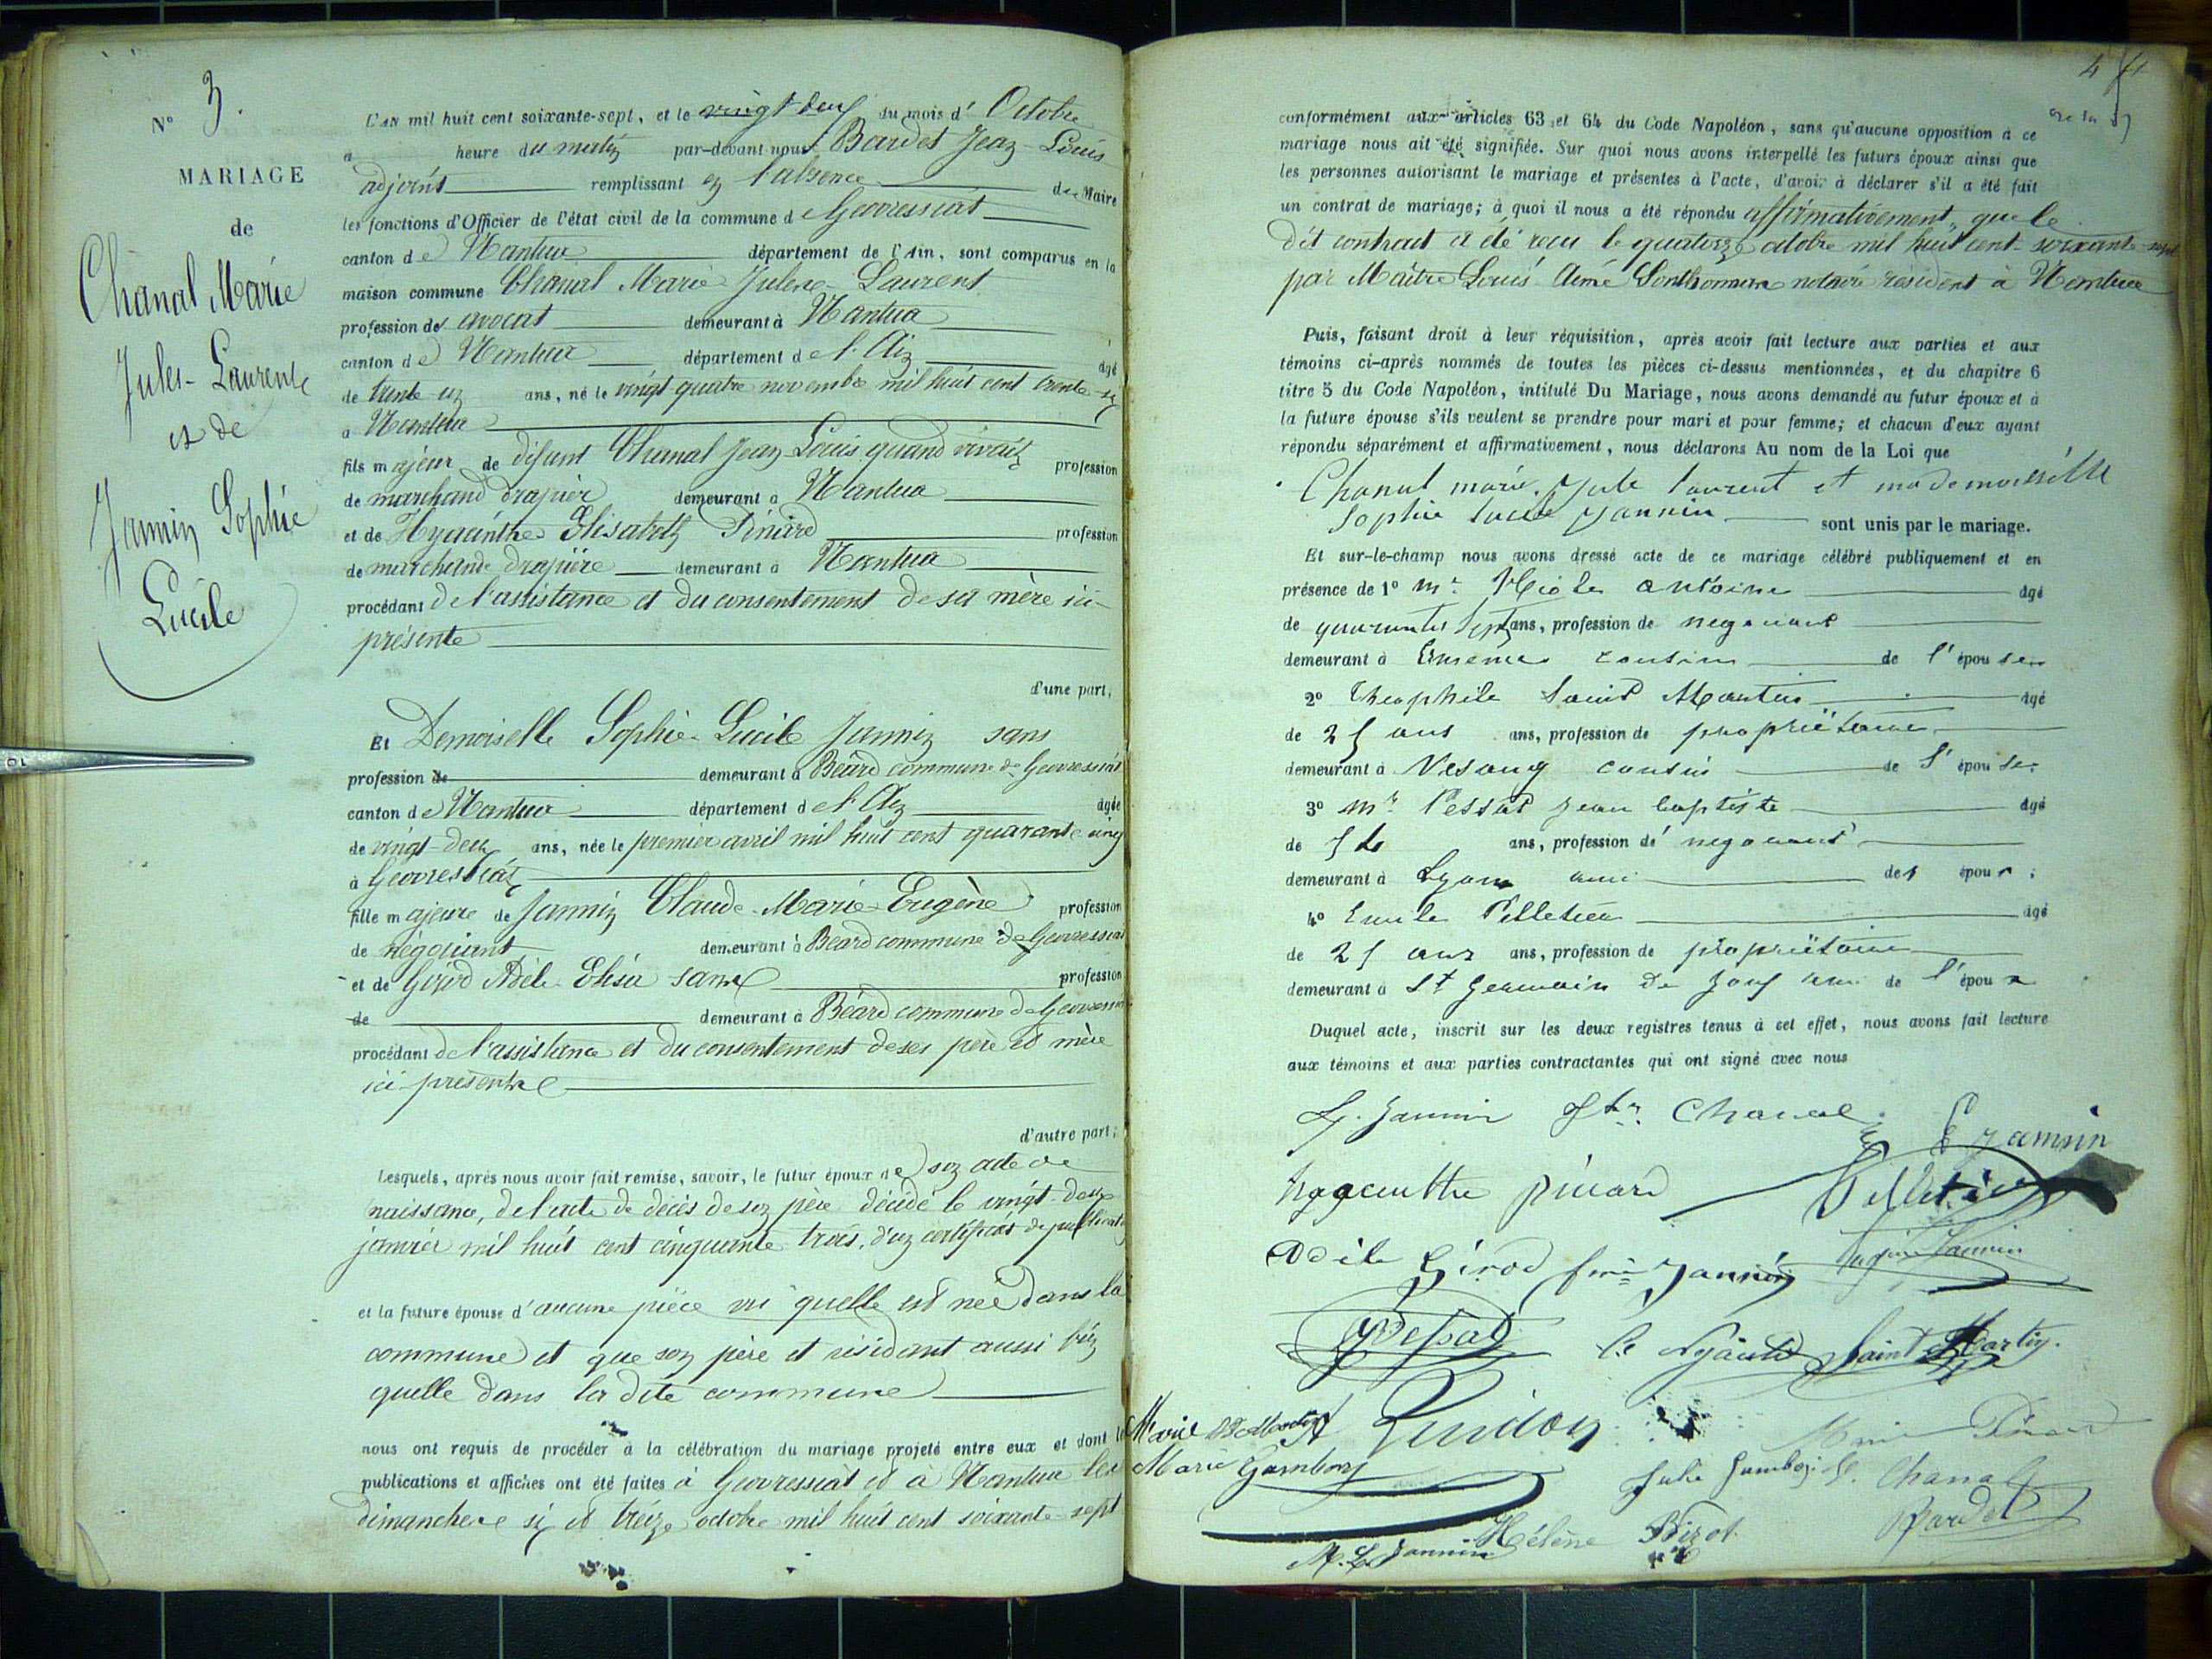 N° 3.
MARIAGE
de
Chanal Marie
Jules-Laurent
et de
Jannin Sophie
Lucile
L'AN mil huit cent soixante-sept, et le vingt deux du mois d' Octobre
a heure du matin par-devant nous Bardet Jean-Louis
adjoint remplissant en l'absence du Maire
les fonctions d'Officier de l'état civil de la commune d Geovressiat
canton de Nantua département de l'Ain, sont comparus en la
maison commune Chanal Marie Jules-Laurent
profession d' avocat demeurant à Nantua
canton de Nantua département de l'Ain âgé
de trente un ans, né le vingt quatre novembre mil huit cent trente-six
a Nantua
fils majeur de défunt Chanal Jean Louis quand vivait profession
de marchand drapier demeurant a Nantua
et de Hyacinthe Elisabeth Pinard profession
de marchande drapière demeurant à Nantua
procédant de l'assistance et du consentement de sa mère ici-
présente
d'une part,
Et Demoiselle Sophie-Lucile Jannin sans
profession de demeurant à Béard commune de Geovressiat
canton de Nantua département de l'Ain âgée
de vingt-deux ans, née le premier avril mil huit cent quarante cinq
à Geovressiat
fille majeure de Jannin Claude-Marie-Eugène profession
de négociant demeurant à Béard commune de Geovressiat
et de Girod Adèle-Elisa sans profession
de demeurant à Béard commune de Geovressiat
procédant de l'assistance et du consentement de ses père et mère
ici présents
d'autre part;
Lesquels, après nous avoir fait remise, savoir, le futur époux de son acte de
naissance, de l'acte de décès de son père décédé le vingt-deux
janvier mil huit cent cinquante trois, d'un certificat de publication
et la future épouse d'aucune pièce vu quelle est née dans la
commune et que son père et résidant aussi bien
quelle dans la dite commune
nous ont requis de procéder à la célébration du mariage projeté entre eux et dont les
publications et affiches ont été faites à Geovressiat et à Nantua les
dimanches six et treize octobre mil huit cent soixante-sept
conformément aux articles 63 et 64 du Code Napoléon, sans qu'aucune opposition à ce
mariage nous ait été signifiée. Sur quoi nous avons interpellé les futurs époux ainsi que
les personnes autorisant le mariage et présentes à l'acte, d'avoir à déclarer s'il a été fait
un contrat de mariage; à quoi il nous a été répondu affirmativement, que le
dit contrat a été reçu le quatorze octobre mil huit cent-soixante-sept
par Maître Louis Aimé Sonthonnax notaire résident à Nantua
Puis, faisant droit à leur réquisition, après avoir fait lecture aux parties et aux
témoins ci-après nommés de toutes les pièces ci-dessus mentionnées, et du chapitre 6
titre 5 du Code Napoléon, intitulé Du Mariage, nous avons demandé au futur époux et à
la future épouse s'ils veulent se prendre pour mari et pour femme; et chacun d'eux ayant
répondu séparément et affirmativement, nous déclarons Au nom de la Loi que
Chanal marie Jule laurent et mademoiselle
Sophie Lucile Jannin sont unis par le mariage.
Et sur-le-champ nous avons dressé acte de ce mariage célébré publiquement et en
présence de 1° Mr antoine âgé
de quarante sept ans, profession de negociant
demeurant à cousin de l'épouse
2° Theophile Saint Martin âgé
de 25 ans ans, profession de propriétaire
demeurant à cousin de l'épouse
3° Mr Pessat Jean baptiste âgé
de ans, profession de negociant
demeurant à Lyon ami des époux;
4° Emile Pelletier âgé
de 25 ans ans, profession de propriétaire
demeurant à St Germain de Joux ami de l'époux
Duquel acte, inscrit sur les deux registres tenus à cet effet, nous avons fait lecture
aux témoins et aux parties contractantes qui ont signé avec nous
Jannin Chanal
E Jannin
hyacinthe pinard Pelletier
Adèle Girod fme Jannin Jannin
Pessat Saint Martin
Marie St Martin
Marie Pinard
Marie Gambon Julie Chanal
Bardet
Hélène Bizot
Jannin